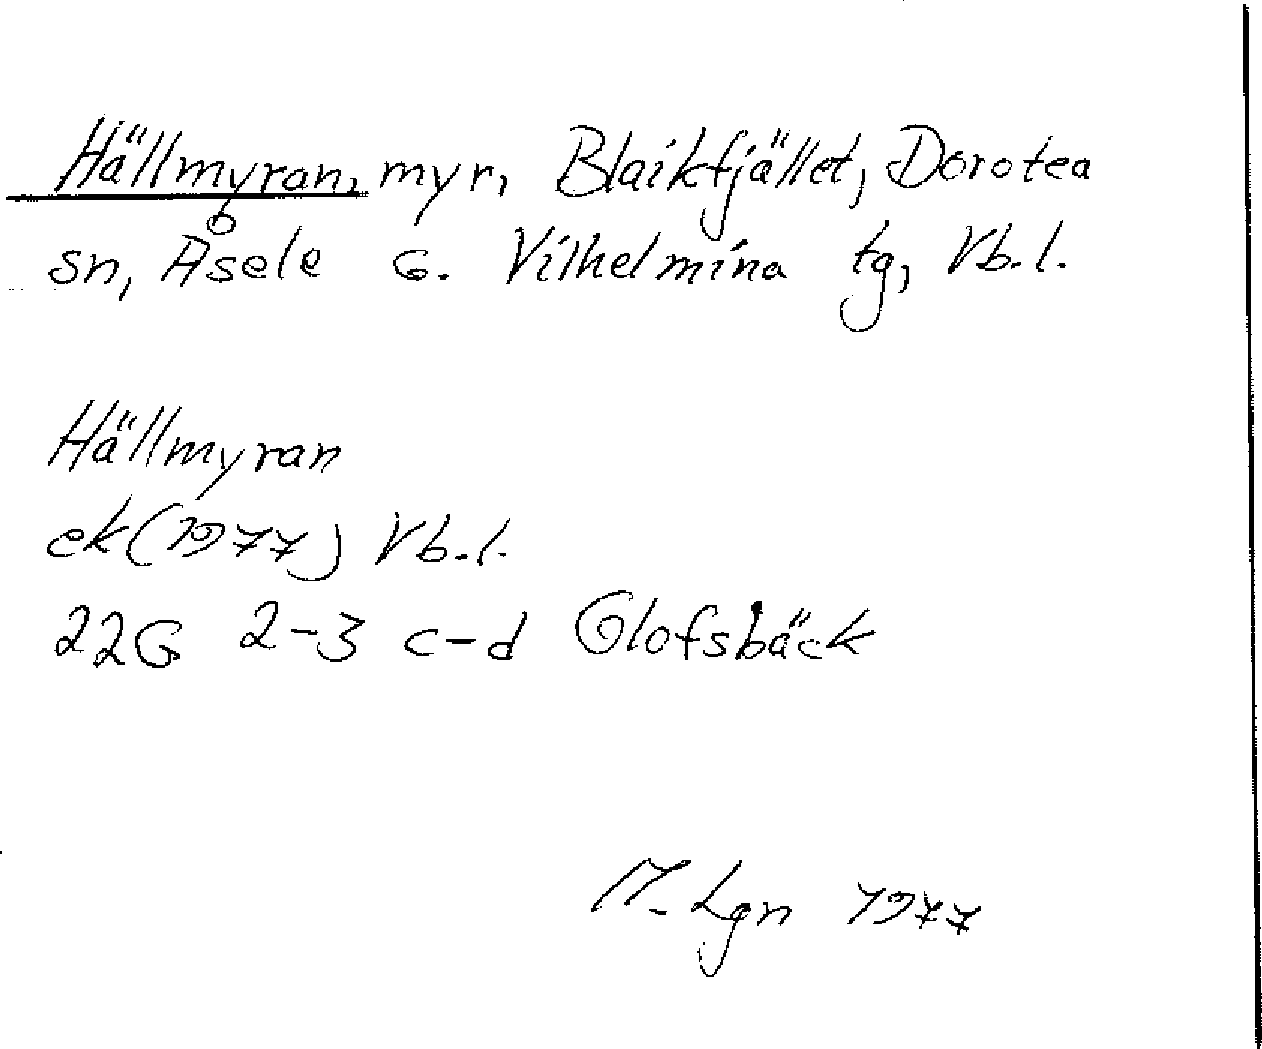 Hällmyran, myr, Blaikfjället, Dorotea
sn, Åsele o. Vilhelmina tg, Vb.l.
Hällmyran
ek (1977) Vb.l.
22G 2-3 c-d Olofsbäck
M. Lgn 1977